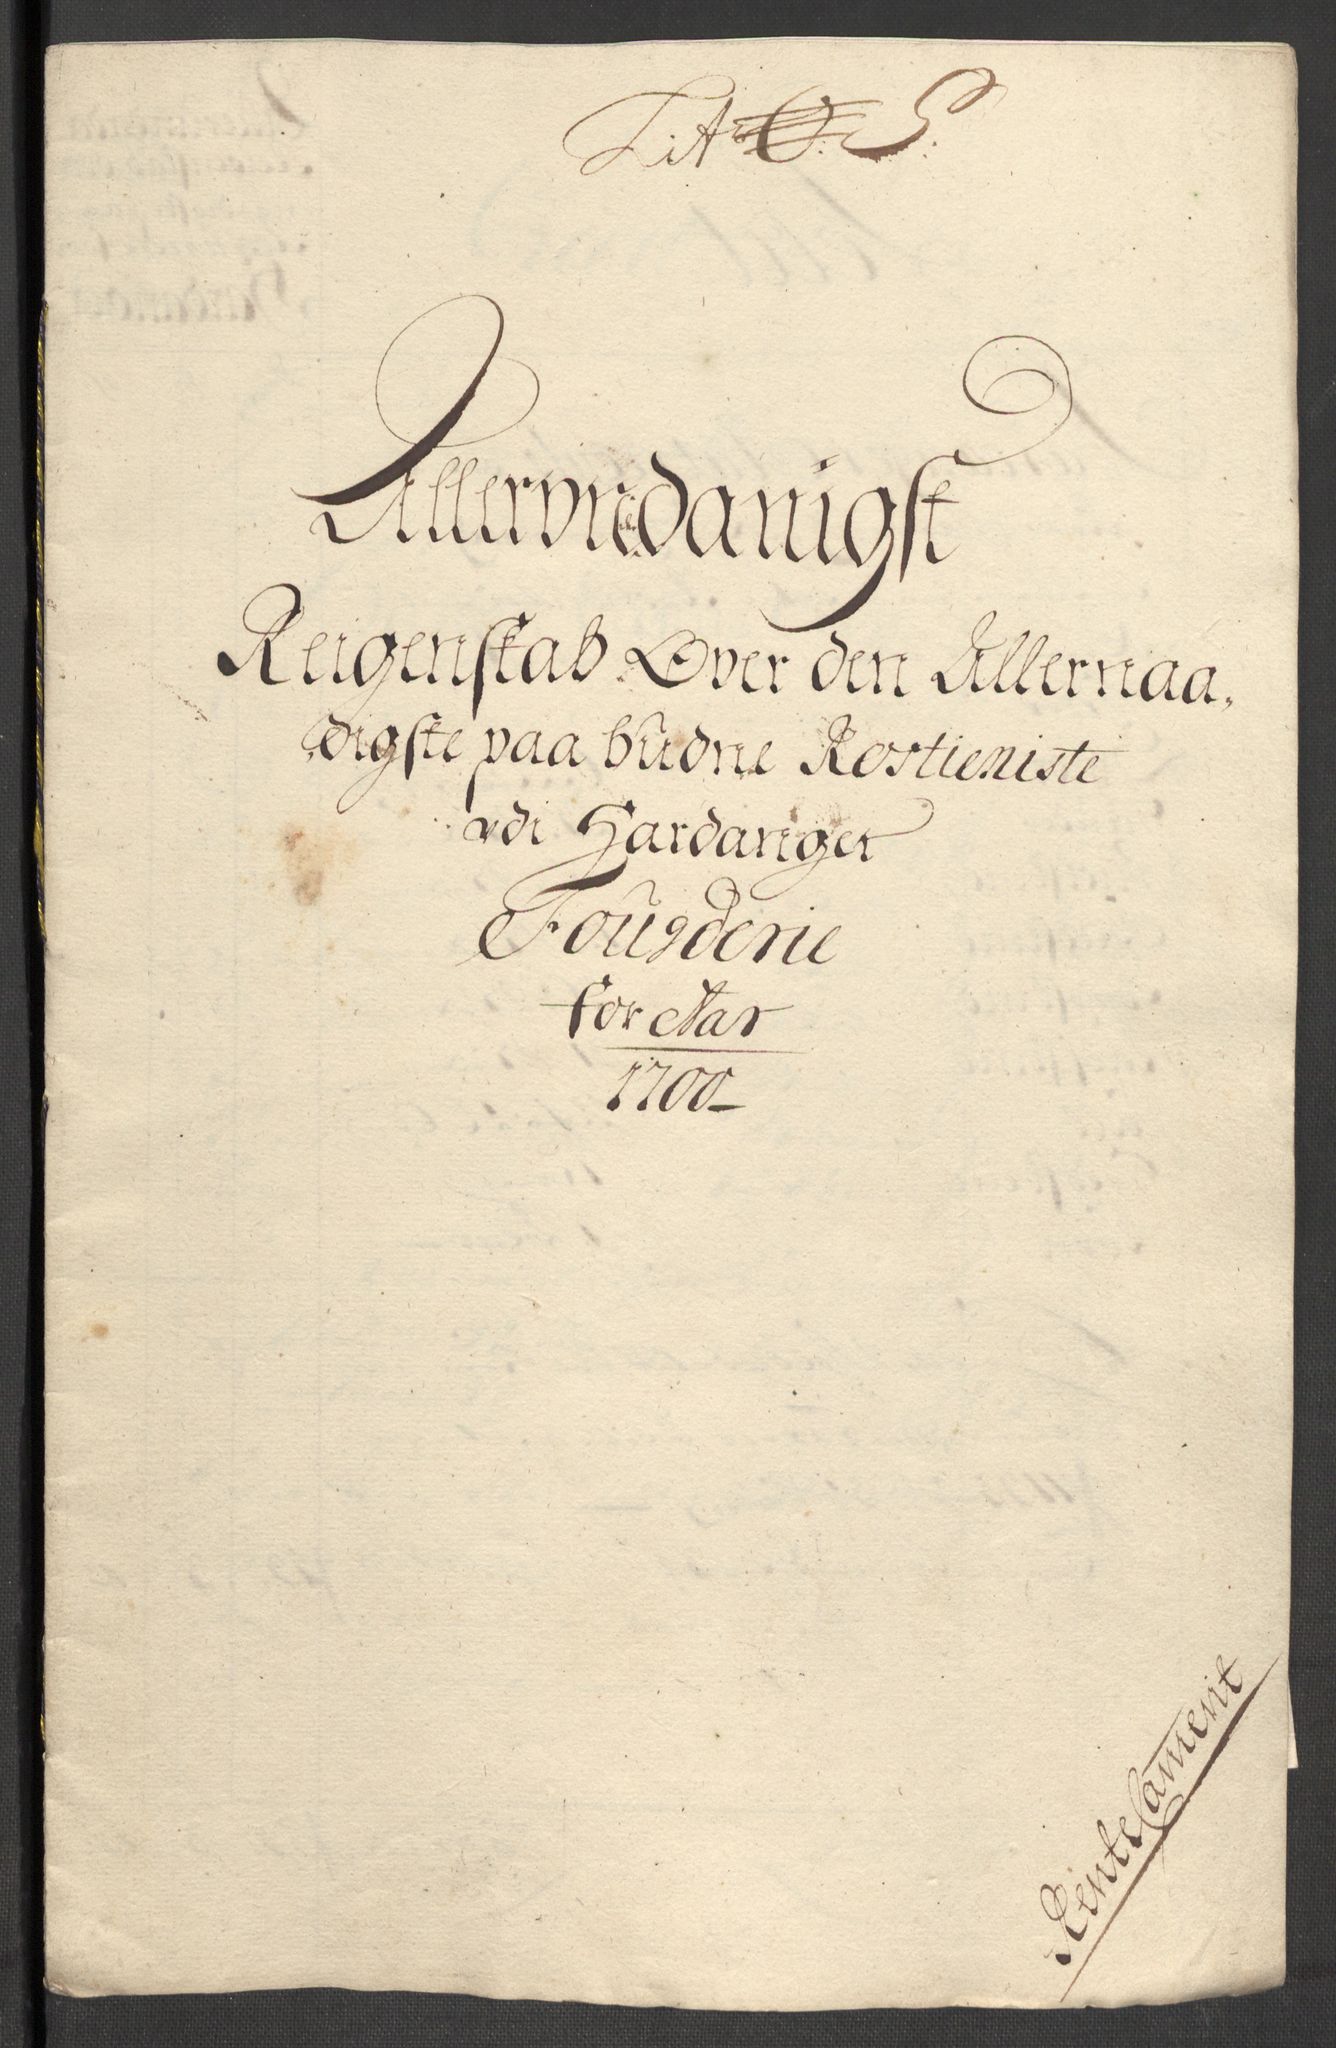 Litr. O. S.
Allervnedanigst
Reigenskab Over den Allernaa,
digste paa budne Rostieniste
vdi Hardanger
Fougderie
for Aar
1700
Rente Cament